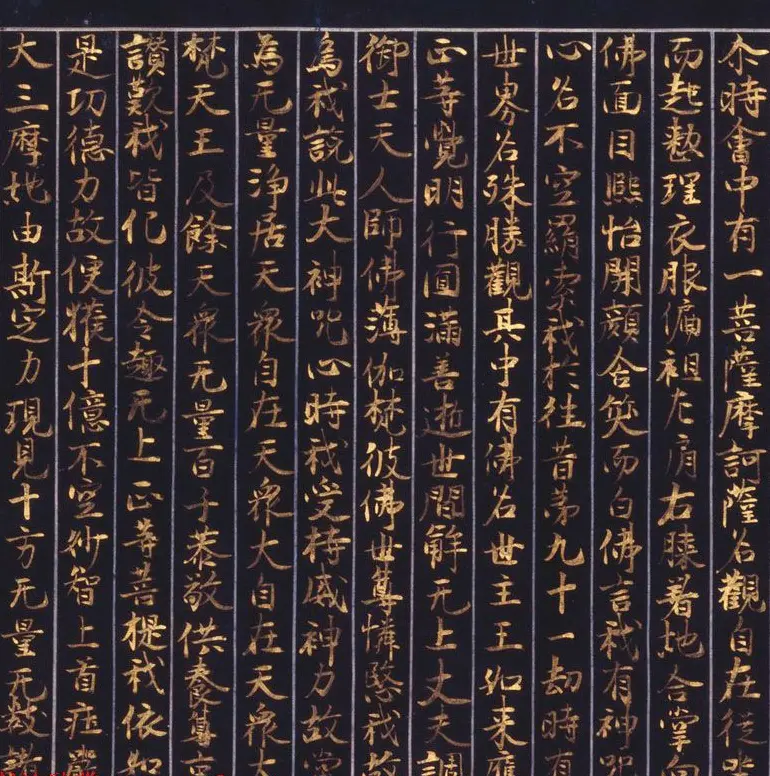 尒時會中有一菩薩摩訶薩名觀自在從
而起整理衣服偏袒右肩右膝著地合掌向
佛面目熈怡開顔含笑而白佛言我有神呪
心名不空羂索我於往昔第九十一劫時有
世界名殊勝觀其中有佛名世主王如来應
正等覺明行圓滿善逝世間觧无上丈夫調
御士天人師佛薄伽梵彼佛世尊憐愍我故
為我說此大神呪心時我受持威神力故常
為无量淨居天衆自在天衆大自在天衆大
梵天王及餘天衆无量百千恭敬供養尊
讃歎我皆化彼令趣无上正等菩提我依如
是功德力故便獲十億不空妙智上首莊嚴
大三摩地由斯定力現見十方无量无數諸